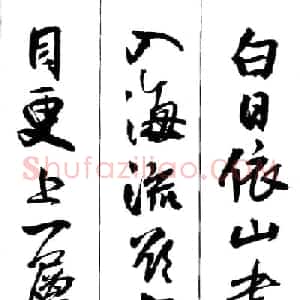 白日依山
入海流欲
目更上一層
Shufaziliao.COM